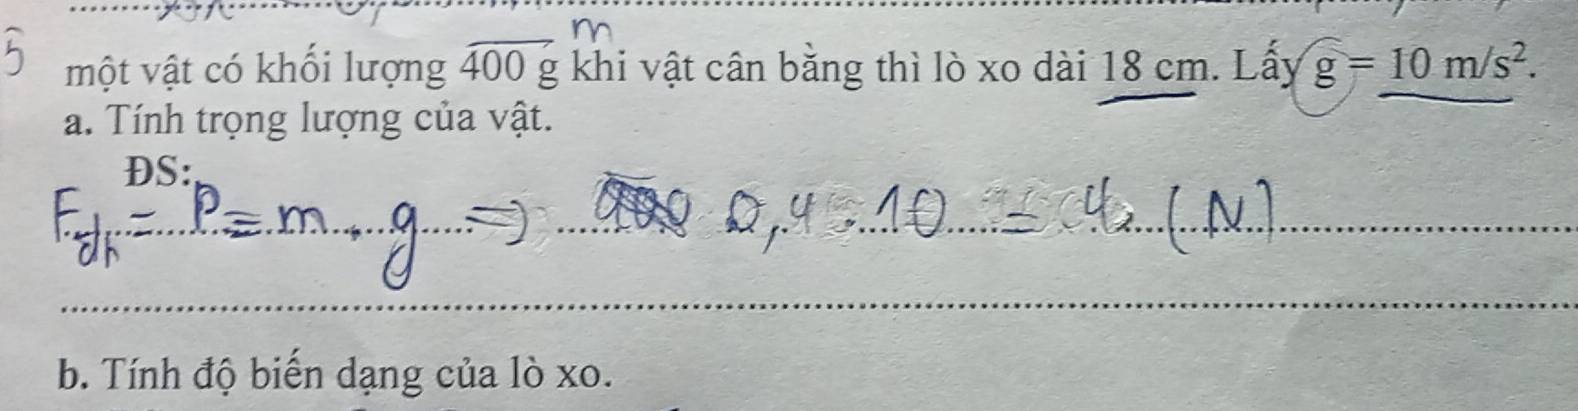 5
m
một vật có khối lượng 400 g khi vật cân bằng thì lò xo dài 18 cm. Lấy g = 10 m/s².
a. Tính trọng lượng của vật.
ĐS:
Fđh = P = m . g => 0,4 . 10 = 4 (N)
b. Tính độ biến dạng của lò xo.